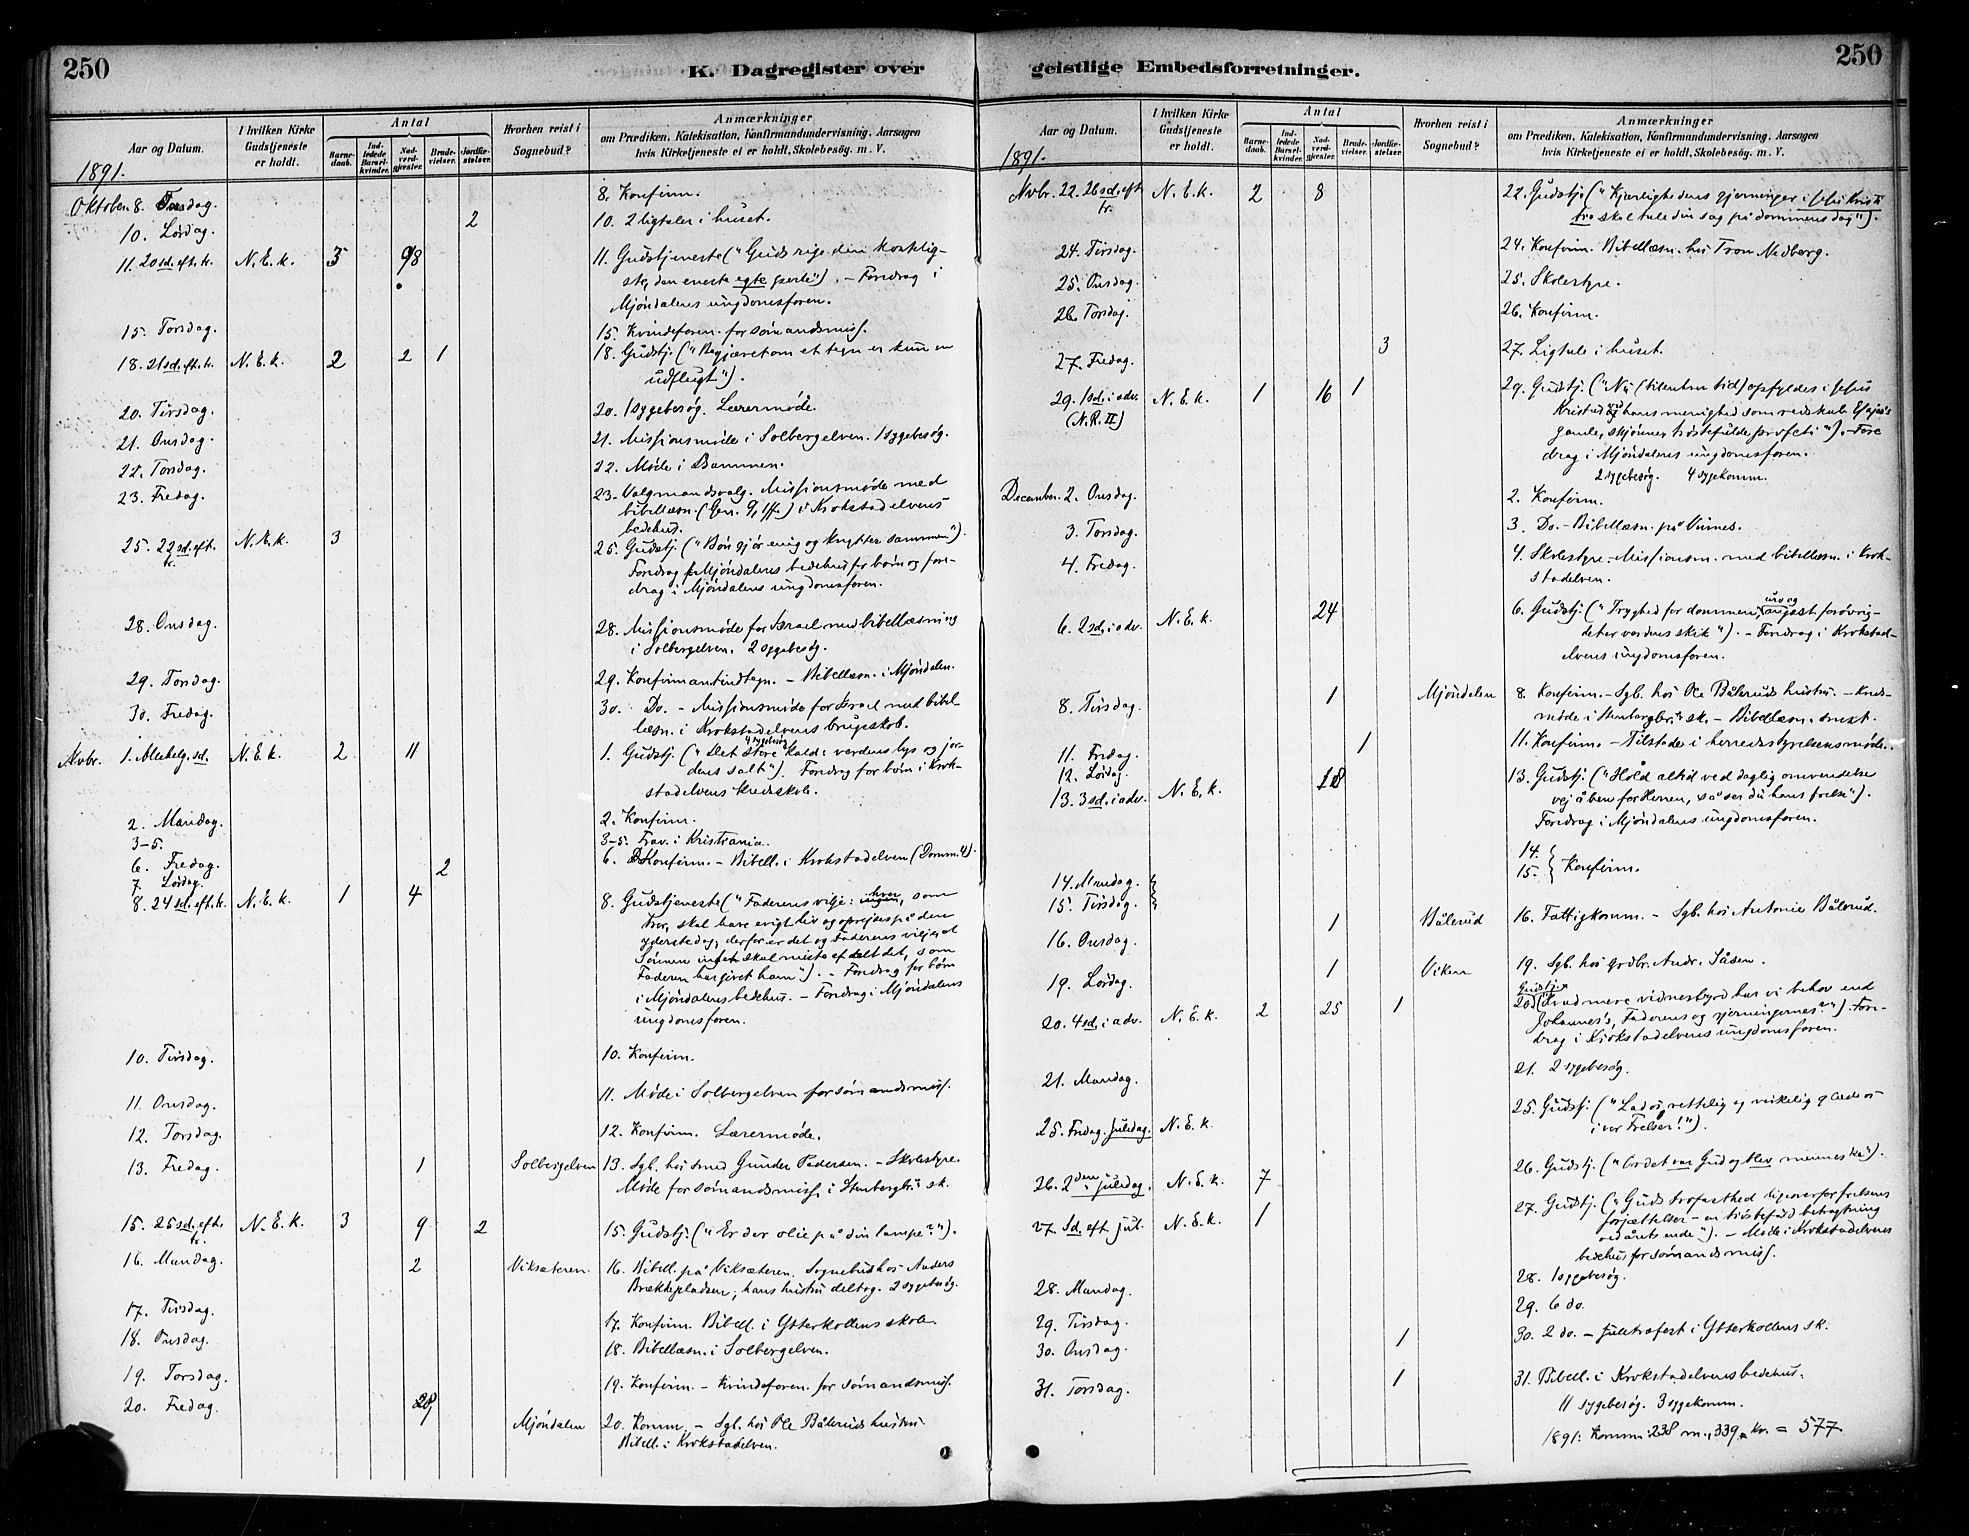 250
K. Dagregister over
Aar og Datum.
I hvilken Kirke Gudstjeneste er holdt.
Antal
Barnedaab.
Indledede Barselkvinder.
Nadverdgjester.
Brudevielser.
Jordfæstelser.
Hvorhen reist i Sognebud?
Anmærkninger
om Prædiken, Katekisation, Konfirmandundervisning, Aarsagen
hvis Kirketjeneste ei er holdt, Skolebesøg. m. V.
1891.
Oktober 8. Torsdag. 8. Konfirm.
10. Lørdag. 2 10. 2 ligtaler i huset.
11. 20 sd. eft. tr. N.E.k. 98 11. Gudstjeneste ("Guds rige den kostelig-
ste, den eneste egte perle"). – Foredrag i
Mjøndalens ungdomsforen.
15. Torsdag. 15. Kvindeforen. for sømandsmiss.
18. 21 sd. eft. tr. N.E.k. 2 2 1 18. Gudstj. ("Begjæret om et tegn er kun en
udflugt").
20. Tirsdag. 20. 1 sygebesøg. Lærermøde.
21. Onsdag. 21. Missionsmøde i Solbergelven. 1 sygebesøg.
22. Torsdag. 22. Møde i Drammen.
23. Fredag. 23. Valgmandsvalg. Missionsmøde med
bibellæsn. (Gen. 9, 1ff.) i Krokstadelvens
bedehus.
25. 22 sd. eft. tr. N.E.k. 3 25. Gudstj. ("Bøn gjør enig og knytter sammen").
Foredrag på Mjøndalens bedehus for børn og fore-
drag i Mjøndalens ungdomsforen.
28. Onsdag. 28. Missionsmøde for Israel med bibellæsning
i Solbergelven. 2 sygebesøg.
29. Torsdag. 29. Konfirmantindtegn. – Bibellæsn. i Mjøndalen.
30. Fredag. 30. Do. – Missionsmøde for Israel med bibel-
læsn. i Krokstadelvens brugsskole.
4 sygebesøg
Nvbr. 1. Allehelg. sd. N.E.k. 2 11 1. Gudstj. ("Det store kald: verdens lys og jor-
dens salt"). Foredrag for børn i Krok-
stadelvens kredsskole.
2. Mandag. 2. Konfirm.
3–5. 3–5. Frav. i Kristiania.
6. Fredag. 2 6. Konfirm. – Bibell. i Krokstadelven (Domm. 4).
7. Lørdag.
8. 24 sd. eft. tr. N.E.k. 1 4 8. Gudstjeneste ("Faderens vilje: hver, som
tror, skal have evigt liv og oprejses på den
yderste dag, derfor er det og Faderens vilje, at
Sønnen intet skal miste af alt det, som
Faderen har givet ham"). – Foredrag for børn
i Mjøndalens bedehus. – Foredrag i Mjøndalens
ungdomsforen.
10. Tirsdag. 10. Konfirm.
11. Onsdag. 11. Møde i Solbergelven for sømandsmiss.
12. Torsdag. 12. Konfirm. Lærermøde.
13. Fredag. 1 Solbergelven 13. Sgb. hos smed Gunder Pedersen. – Skolestyre.
Møde for sømandsmiss. i Stenbergbr.s sk.
15. 25 sd. eft. tr. N.E.k. 3 9 2 15. Gudstj. ("Er der olie på din lampe?").
16. Mandag. 2 Viksæteren. 16. Bibell. på Viksæteren. Sognebud hos Anders
Brækkepladsen; hans hustru deltog. 2 sygebesøg.
17. Tirsdag. 17. Konfirm. Bibell. i Ytterkollens skole.
18. Onsdag. 18. Bibellæsn. i Solbergelven.
19. Torsdag. 19. Konfirm. – Kvindeforen. for sømandsmiss.
20. Fredag. Mjøndalen 20. Komm. – Sgb. hos Ole Båleruds hustru
Bibell. i Krokstadelven.
250
geistlige Embedsforretninger.
Aar og Datum.
I hvilken Kirke Gudstjeneste er holdt.
Antal
Barnedaab.
Indledede Barselkvinder.
Nadverdgjester.
Brudevielser.
Jordfæstelser.
Hvorhen reist i Sognebud?
Anmærkninger
om Prædiken, Katekisation, Konfirmandundervisning, Aarsagen
hvis Kirketjeneste ei er holdt, Skolebesøg. m. V.
1891.
Nvbr. 22. 26 sd. eft. tr. N.E.k. 2 8 22. Gudstj. ("Kjærlighedens gjerninger i Jesu Kristi
tro skal tale din sag på dommens dag").
24. Tirsdag. 24. Konfirm. Bibellæsn. hos Tron Nedberg.
25. Onsdag. 25. Skolestyre.
26. Torsdag. 26. Konfirm.
27. Fredag. 3 27. Ligtale i huset.
29. 1 sd. i adv. N.E.k. 1 16 1 29. Gudstj. ("Nu (til enhver tid) opfyldes i Jesus
(N.R. II) Kristus ved hans menighed som redskab Esajas's
gamle, skjønne, trøstefulde profeti"). – Fore
drag i Mjøndalens ungdomsforen.
2 sygebesøg. 4 sygekomm.
December. 2. Onsdag. 2. Konfirm.
3. Torsdag. 3. Do. – Bibellæsn. på Virnes.
4. Fredag. 4. Skolestyre. Missionsm. med bibellæsn. i Krok-
stadelven.
6. 2 sd. i adv. N.E.k. 24 6. Gudstj. ("Tryghed for dommen, uro og angest forøvrig-
det er verdens skik"). – Foredrag i Krokstad-
elvens ungdomsforen.
8. Tirsdag. 1 Mjøndalen 8. Konfirm. – Sgb. hos Ole Båleruds hustru. – Kreds-
møde i Stenbergbr.s sk. – Bibellæsn. smst.
11. Fredag. 1 11. Konfirm. – Tilstede i herredsstyrelsens møde.
12. Lørdag.
13. 3 sd. i adv. N.E.k. 13. Gudstj. ("Hold altid ved daglig omvendelse
vej åben for Herren, så ser du hans frelse").
Foredrag i Mjøndalens ungdomsforen.
14. Mandag. 14.
15. Tirsdag. 15. Konfirm.
16. Onsdag. 1 Bålerud 16. Fattigkomm. – Sgb. hos Antonie Bålerud.
19. Lørdag. 1 Viken 19. Sgb. hos grdbr. Andr. Såsen.
20. 4 sd. i adv. N.E.k. 2 25 1 20. Gudstj. ("Hvad mere vidnesbyrd har vi behov end
Johannes's, Faderens og gjerningernes?"). Fore-
drag i Krokstadelvens ungdomsforen.
21. Mandag. 21. 2 sygebesøg.
25. Fredag. Juledag. N.E.k. 25. Gudstj. ("Lad os rettelig og virkelig glæde os
i vor Frelser!").
26. 2den juledag. N.E.k. 7 26. Gudstj. ("Ordet var Gud og blev menneske").
27. Sd. eft. jul. N.E.k. 1 27. Gudstj. ("Guds trofasthed ligeoverfor frelsens
forjættelser – en trøstefuld betragtning
ved årets ende"). – Møde i Krokstadelvens
bedehus for sømandsmiss.
28. Mandag. 28. 1 sygebesøg.
29. Tirsdag. 29. 6 do.
30. Onsdag. 1 30. 2 do. – Juletrefest i Ytterkollens sk.
31. Torsdag. 1 31. Bibell. i Krokstadelvens bedehus.
11 sygebesøg. 3 sygekomm.
1891: Komm: 238 m., 339 kv. = 577